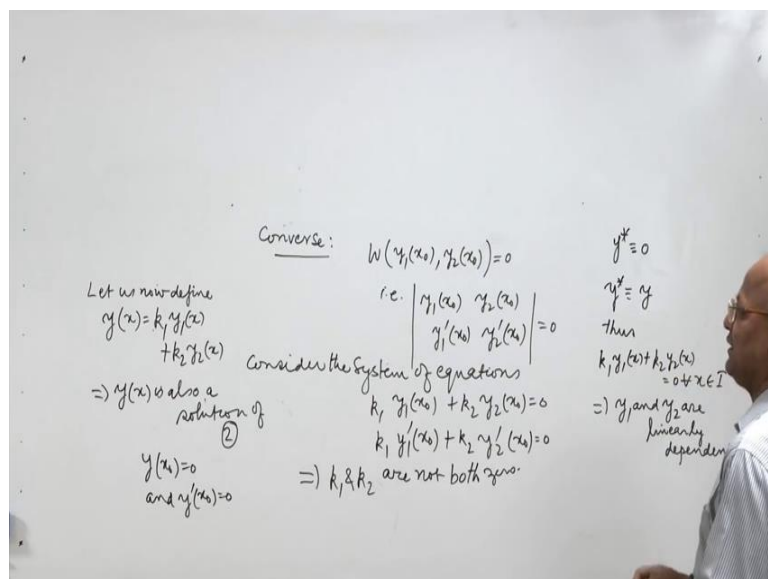 Converse: W(y₁(x₀), y₂(x₀))=0
i.e. | y₁(x₀) y₂(x₀) |
| y₁'(x₀) y₂'(x₀) | =0
Consider the System of equations
k₁ y₁(x₀) + k₂ y₂(x₀)=0
k₁ y₁'(x₀) + k₂ y₂'(x₀)=0
=) k₁ & k₂ are not both zero.
Let us now define
y(x)=k₁ y₁(x)
+k₂ y₂(x)
=) y(x) is also a
solution of
②
y(x₀)=0
and y'(x₀)=0
y* ≡ 0
y* ≡ y
thus
k₁ y₁(x)+k₂ y₂(x)
=0 ∀ x ∈ I
=) y₁ and y₂ are
linearly
dependen